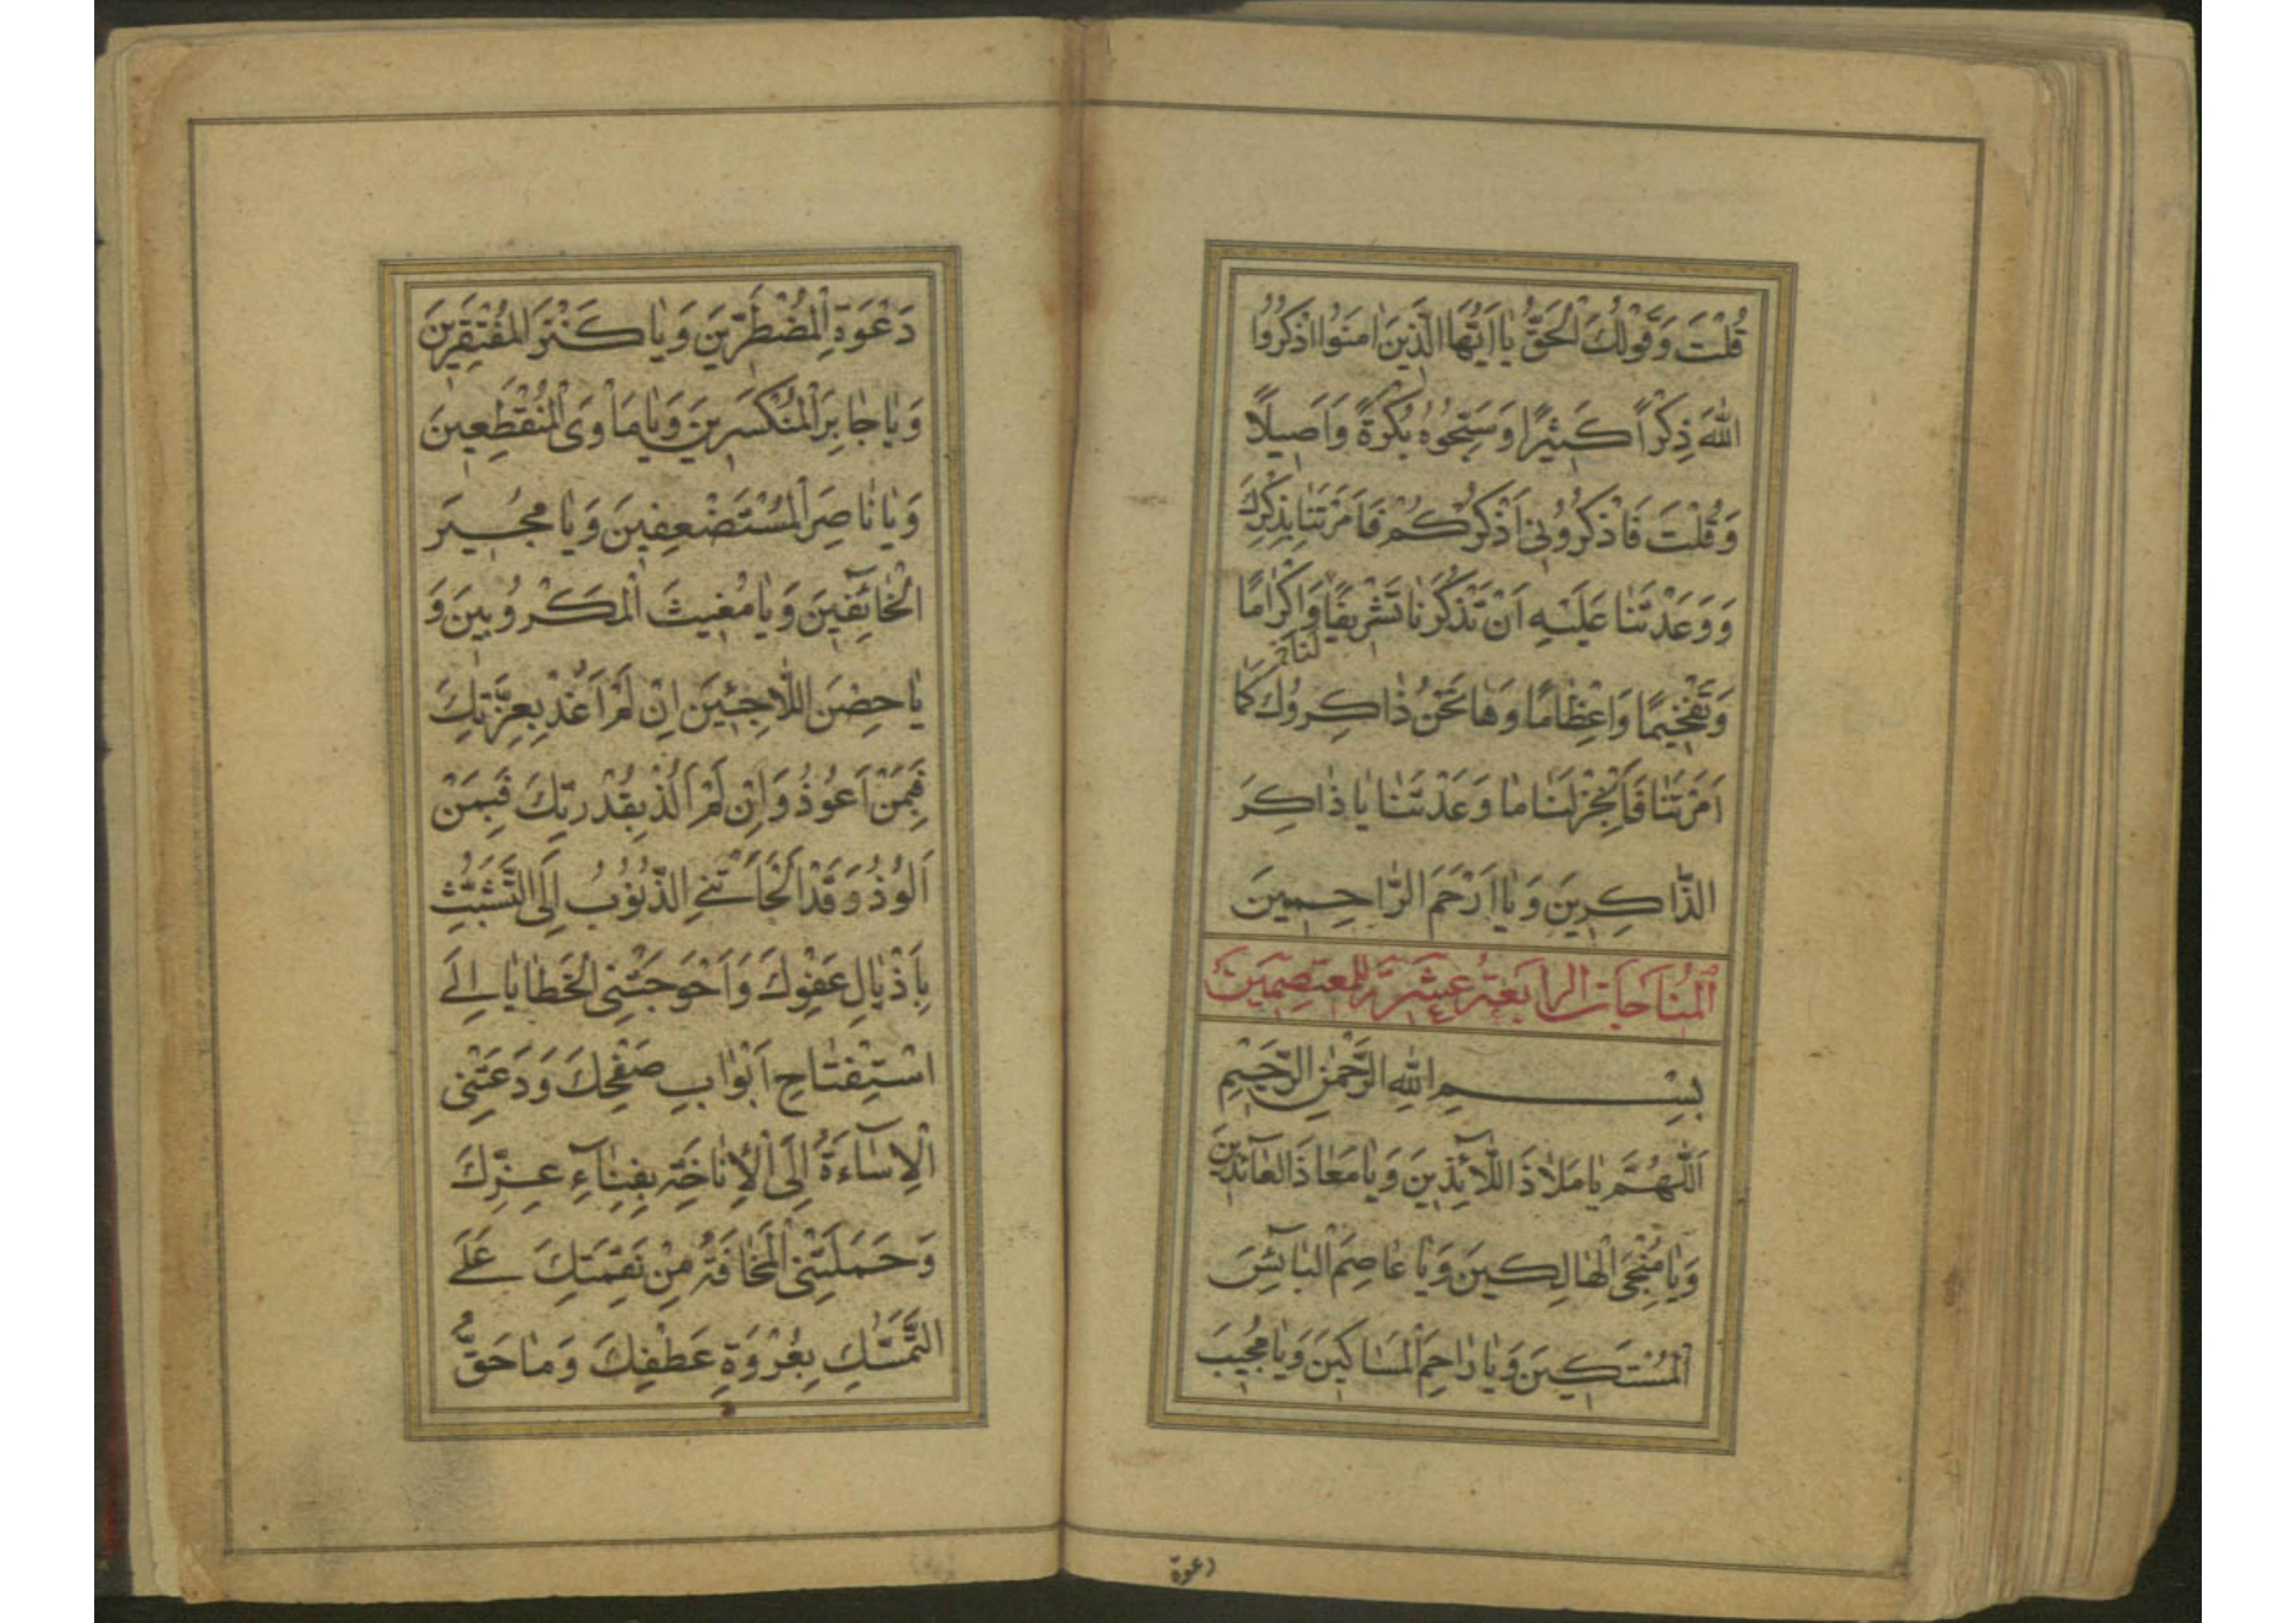 قُلْتَ وَقَوْلُكَ الْحَقُّ يٰا اَيُّهَا الَّذِينَ اٰمَنُوا اذْكُرُوا
اللّٰهَ ذِكْرًا كَثيْرًا وَسَبِّحُوهُ بُكْرَةً وَاَصيلًا
وَقُلْتَ فَاذْكُرُونى اَذْكُرْكُمْ فَاَمَرْتَنٰا بِذِكْرِكَ
وَوَعَدْتَنٰا عَلَيْهِ اَنْ تَذْكُرَنٰا تَشْريفًا وَاِكْرٰامًا
لَنَا
وَتَفْخيمًا وَاِعْظٰامًا وَهٰا نَحْنُ ذٰاكِرُوكَ كَمٰا
اَمَرْتَنٰا فَاَنْجِزْ لَنٰا مٰا وَعَدْتَنٰا يٰا ذٰاكِرَ
الذّٰاكِرينَ وَيٰا اَرْحَمَ الرّٰاحِمينَ
اَلْمُنٰاجٰات الرابعَة عَشَرَ لِلمُعتَصِمينَ
بِسْمِ اللّٰهِ الرَّحْمٰنِ الرَّحيْمِ
اَللّٰهُمَّ يٰا مَلٰاذَ اللّٰائِذينَ وَيٰا مَعٰاذَ الْعٰائِذينَ
وَيٰا مُنْجِىَ الْهٰالِكينَ وَيٰا عٰاصِمَ الْبٰائِسينَ
الْمُسْتَكينَ وَيٰا رٰاحِمَ الْمَسٰاكينَ وَيٰا مُجيبَ
دعوة
دَعْوَةِ الْمُضْطَرّينَ وَيٰا كَنْزَ الْمُفْتَقِرينَ
وَيٰا جٰابِرَ الْمُنْكَسِرينَ وَيٰا مَاْوَى الْمُنْقَطِعينَ
وَيٰا نٰاصِرَ الْمُسْتَضْعَفينَ وَيٰا مُجيرَ
الْخٰآئِفينَ وَيٰا مُغيثَ الْمَكْرُوبينَ وَ
يٰا حِصْنَ اللّٰاجِئينَ اِنْ لَمْ اَعُذْ بِعِزَّتِكَ
فَبِمَنْ اَعُوذُ وَاِنْ لَمْ اَلُذْ بِقُدْرَتِكَ فَبِمَنْ
اَلُوذُ وَقَدْ اَلْجَاَتْنى الذُّنُوبُ اِلَى التَّشَبُّثِ
بِاَذْيٰالِ عَفْوِكَ وَاَحْوَجَتْنِى الْخَطٰايٰا اِلَى
اسْتِفْتٰاحِ اَبْوٰابِ صَفْحِكَ وَدَعَتْنِى
الْاِسٰآءَةُ اِلَى الْاِنٰاخَةِ بِفِنٰآءِ عِزِّكَ
وَحَمَلَتْنِى الْمَخٰافَةُ مِنْ نَقِمَتِكَ عَلَى
التَّمَسُّكِ بِعُرْوَةِ عَطْفِكَ وَمٰا حَقُّ